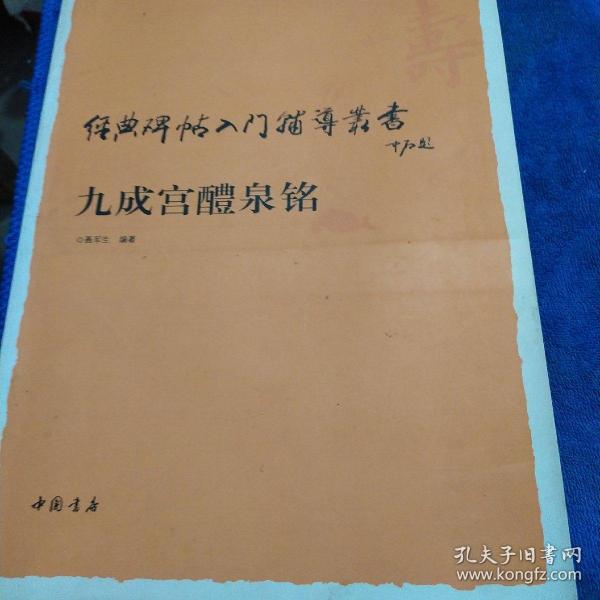 壽
經典碑帖入门辅導叢書
九成宫醴泉铭
◎聂军生 编著
中国書店
孔夫子旧书网
www.kongfz.com